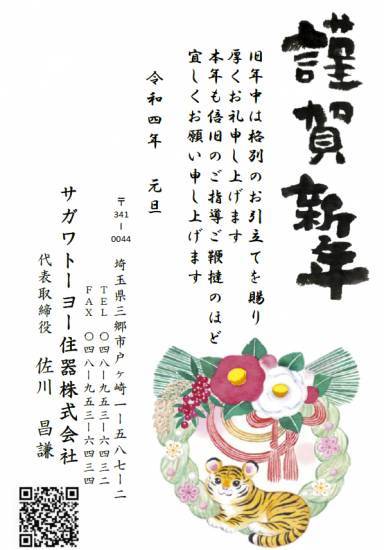 謹賀新年
旧年中は格別のお引立てを賜り
厚くお礼申し上げます
本年も倍旧のご指導ご鞭撻のほど
宜しくお願い申し上げます
令和四年　元旦
〒341-0044
埼玉県三郷市戸ヶ崎一-五八七-二
TEL 〇四八-九五三-六四三二
FAX 〇四八-九五三-六四三四
サガワトーヨー住器株式会社
代表取締役　佐川　昌謙